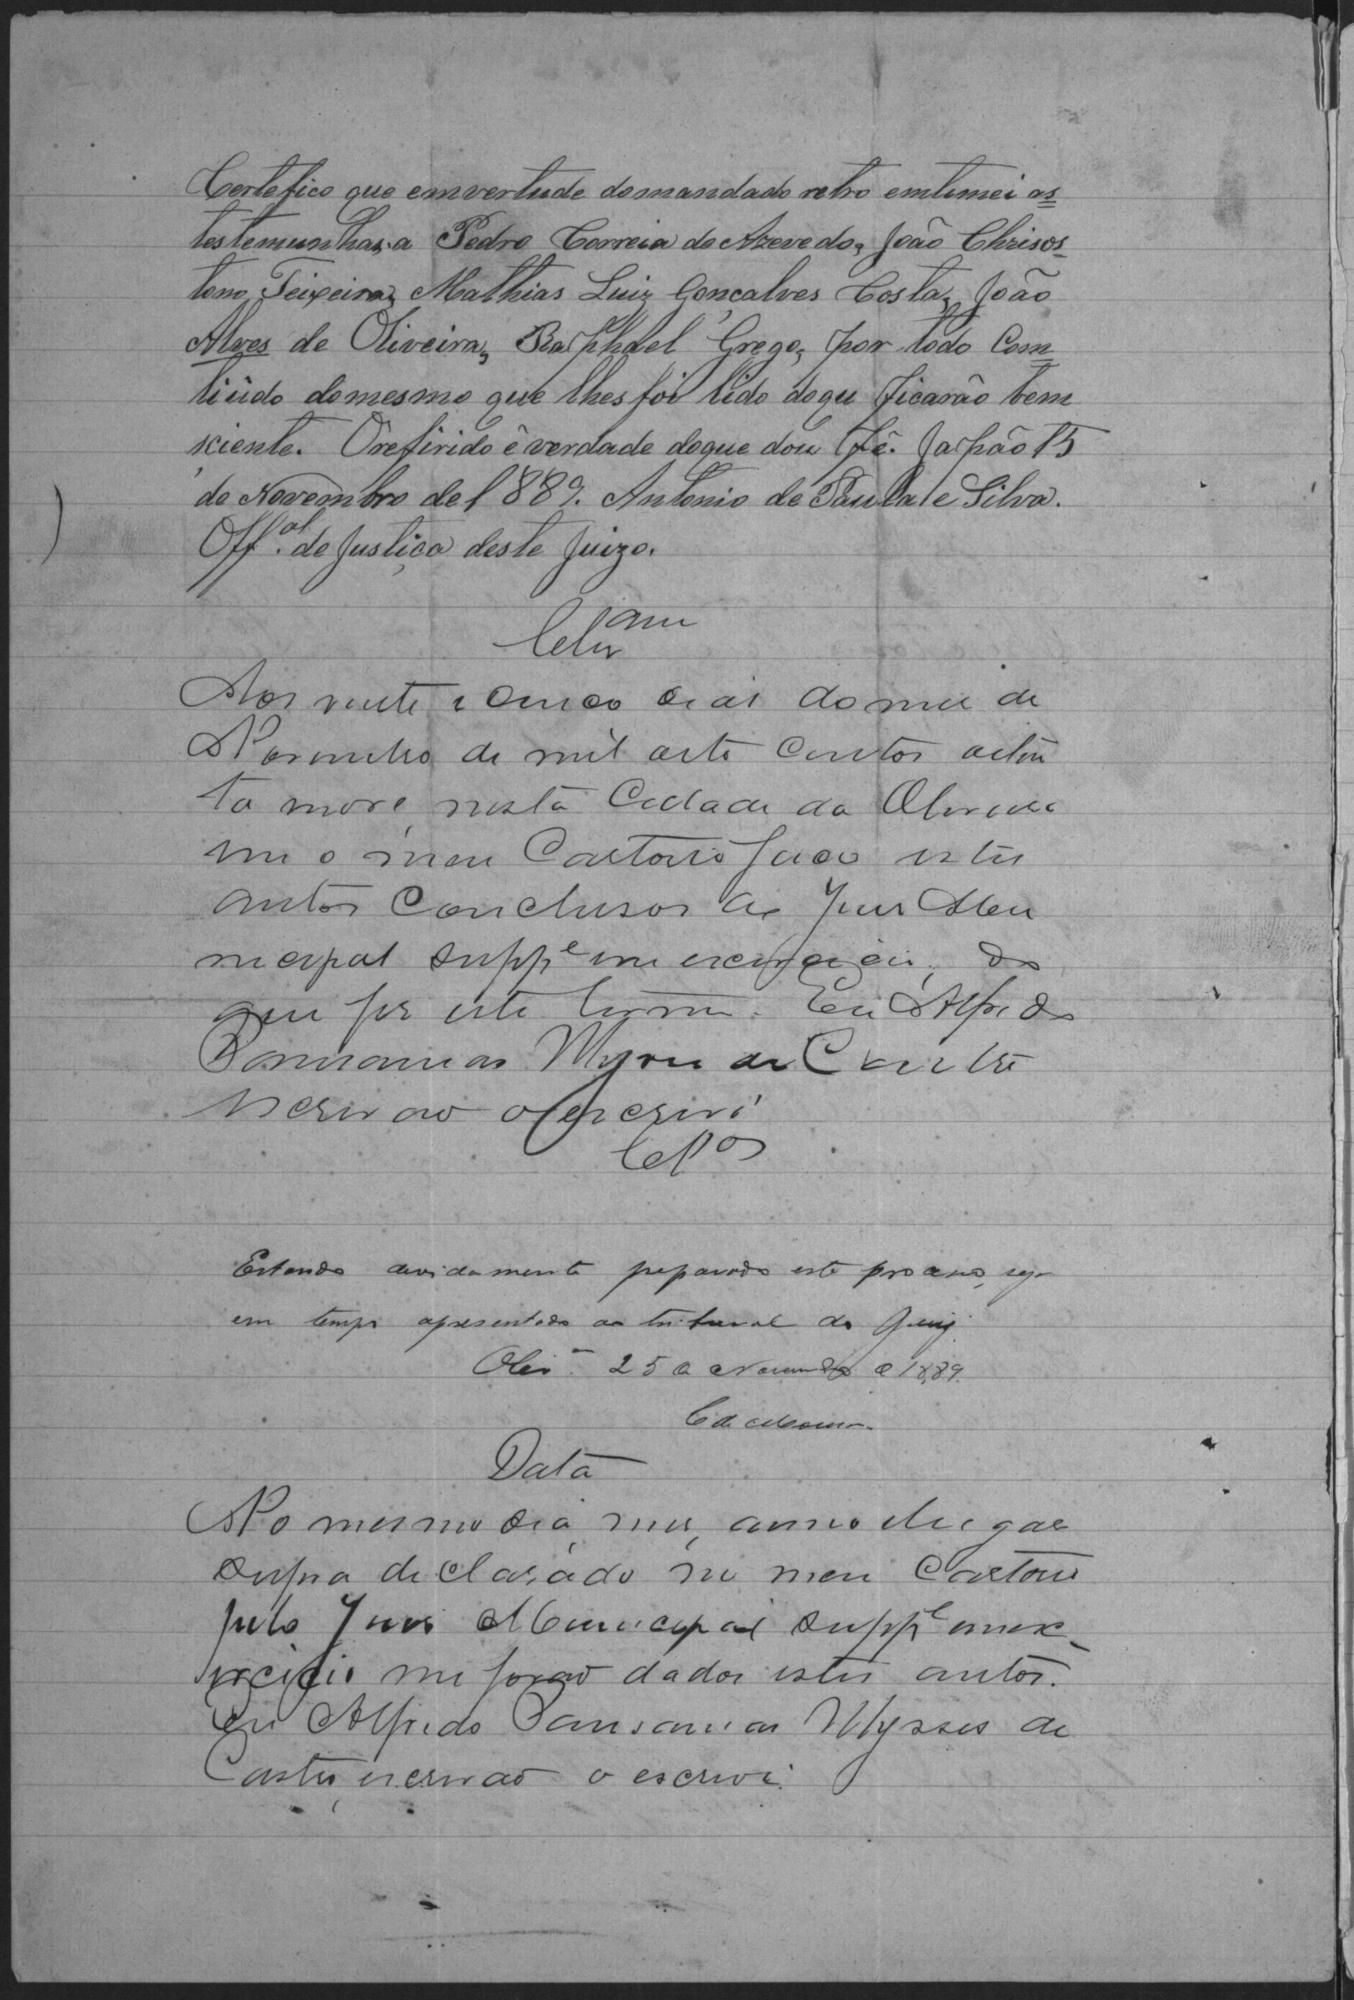 Certefico que emvertude domandado retro emtimei as
testemunhas, a Pedro Correia de Azevedo, João Chrisos-
tomo Teixeira, Mathias Luiz Gonçalves Costa, João
Alves de Oliveira, Raphael Grego, por todo Com
tiúdo domesmo que lhes foi lido doqu ficarão bem
sciente. Orefirido é verdade doque dou fé. Japão 15
de Novembro de 1889. Antonio de Paula e Silva.
Off.al de Justiça deste Juizo.
Clzam
Aos vinte e cinco dias do mez de
Novembro de mil oito centos oiten
ta nove, nesta Cidade da Oliveira
em o meu Cartorio faço estes
autos Conclusos ao Juiz Mu
nicipal suppe em exercicio, do
que fiz este termo. Eu Alfredo
Pausanias Ulysses de Castro
escrivão o escrevi
Clos
Estando devidamente preparado este processo, seja
em tempo apresentado ao tribunal do Jury.
Olivª 25 de Novembro de 1889.
C de
Data
No mesmo dia mez, anno e lugar
supra declarado no meu Cartorio
pelo Juiz Municipal suppe emex-
ercicio me forão dados estes autos.
Eu Alfredo Pausanias Ulysses de
Castro, escrivão o escrevi.